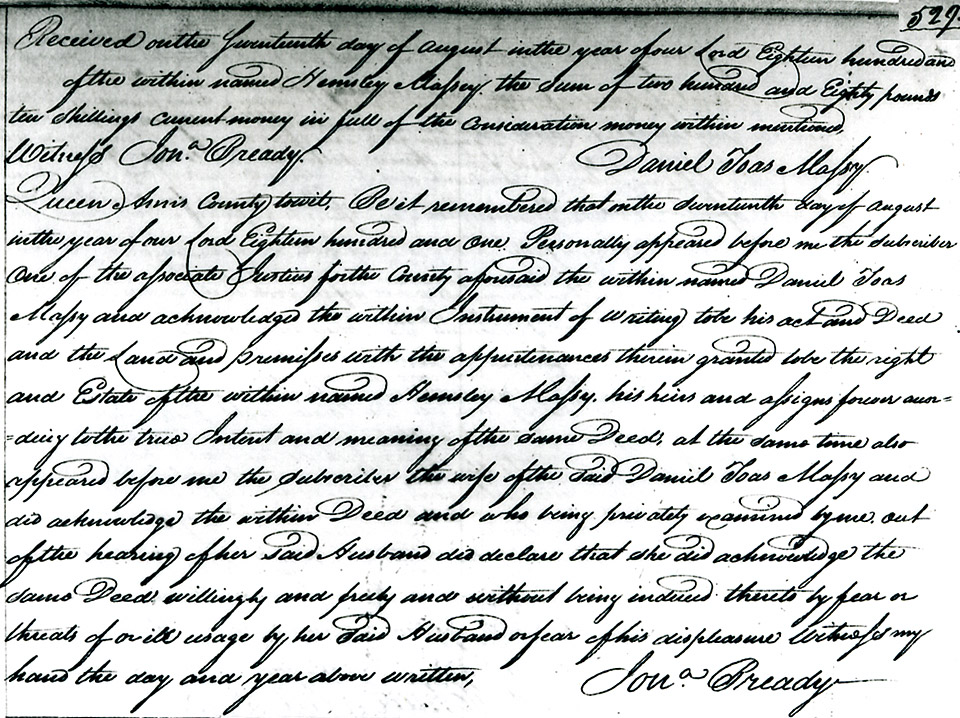 529.
Received on the Seventeenth day of August in the year of our Lord Eighteen hundred and
of the within named Hemsley Massey the Sum of two hundred and Eighty pounds
ten Shillings current money in full of the Consideration money within mentioned,
Witness Jona. Pready. Daniel Toas Massy
Queen Anns County towit, Be it remembered that on the Seventeenth day of August
in the year of our Lord Eighteen hundred and One. Personally appeared before me the Subscriber
One of the associate Justices for the County aforesaid the within named Daniel Toas
Massy and acknowledged the within Instrument of Writing to be his act and Deed
and the Land and premisses with the appurtenances therein granted to be the right
and Estate of the within named Hemsley Massy, his heirs and assigns forever accor=
=ding to the true Intent and meaning of the same Deed, at the same time also
appeared before me the Subscriber the wife of the Said Daniel Toas Massy and
did acknowledge the within Deed and who being privately examined by me, out
of the hearing of her Said Husband did declare that she did acknowledge the
same Deed willingly and freely and without being induced thereto by fear or
threats of or ill usage by her Said Husband or fear of his displeasure Witness my
hand the day and year above written, Jona. Pready